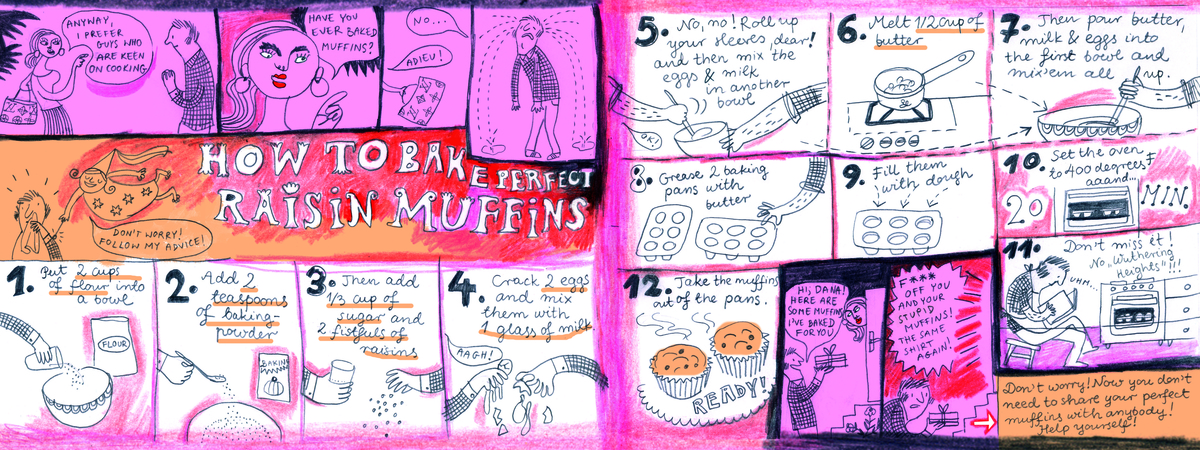 ANYWAY,
I PREFER
GUYS WHO
ARE KEEN
ON COOKING
HAVE YOU
EVER BAKED
MUFFINS?
NO...
ADIEU!
HOW TO BAKE PERFECT
RAISIN MUFFINS
DON'T WORRY!
FOLLOW MY ADVICE!
1. Put 2 cups
of flour into
a bowl
FLOUR
2. Add 2
teaspoons
of baking-
powder
BAKING
3. Then add
1/3 cup of
sugar and
2 fistfuls of
raisins
4. Crack 2 eggs
and mix
them with
1 glass of milk
AAGH!
5. No, no! Roll up
your sleeves, dear!
and then mix the
eggs & milk
in another
bowl
OK!
6. Melt 1/2 cup of
butter
7. Then pour butter,
milk & eggs into
the first bowl and
mix'em all up.
8. Grease 2 baking
pans with
butter
9. Fill them
with dough
10. Set the oven
to 400 degrees F
aaand...
20 MIN.
11. Don't miss it!
No "Wuthering
Heights"!!!
UHM..
12. Take the muffins
out of the pans.
READY!
HI, DANA!
HERE ARE
SOME MUFFINS
I'VE BAKED
FOR YOU!
F****
OFF YOU
AND YOUR
STUPID
MUFFINS!
THE SAME
SHIRT
AGAIN!
Don't worry! Now you don't
need to share your perfect
muffins with anybody!
Help yourself!